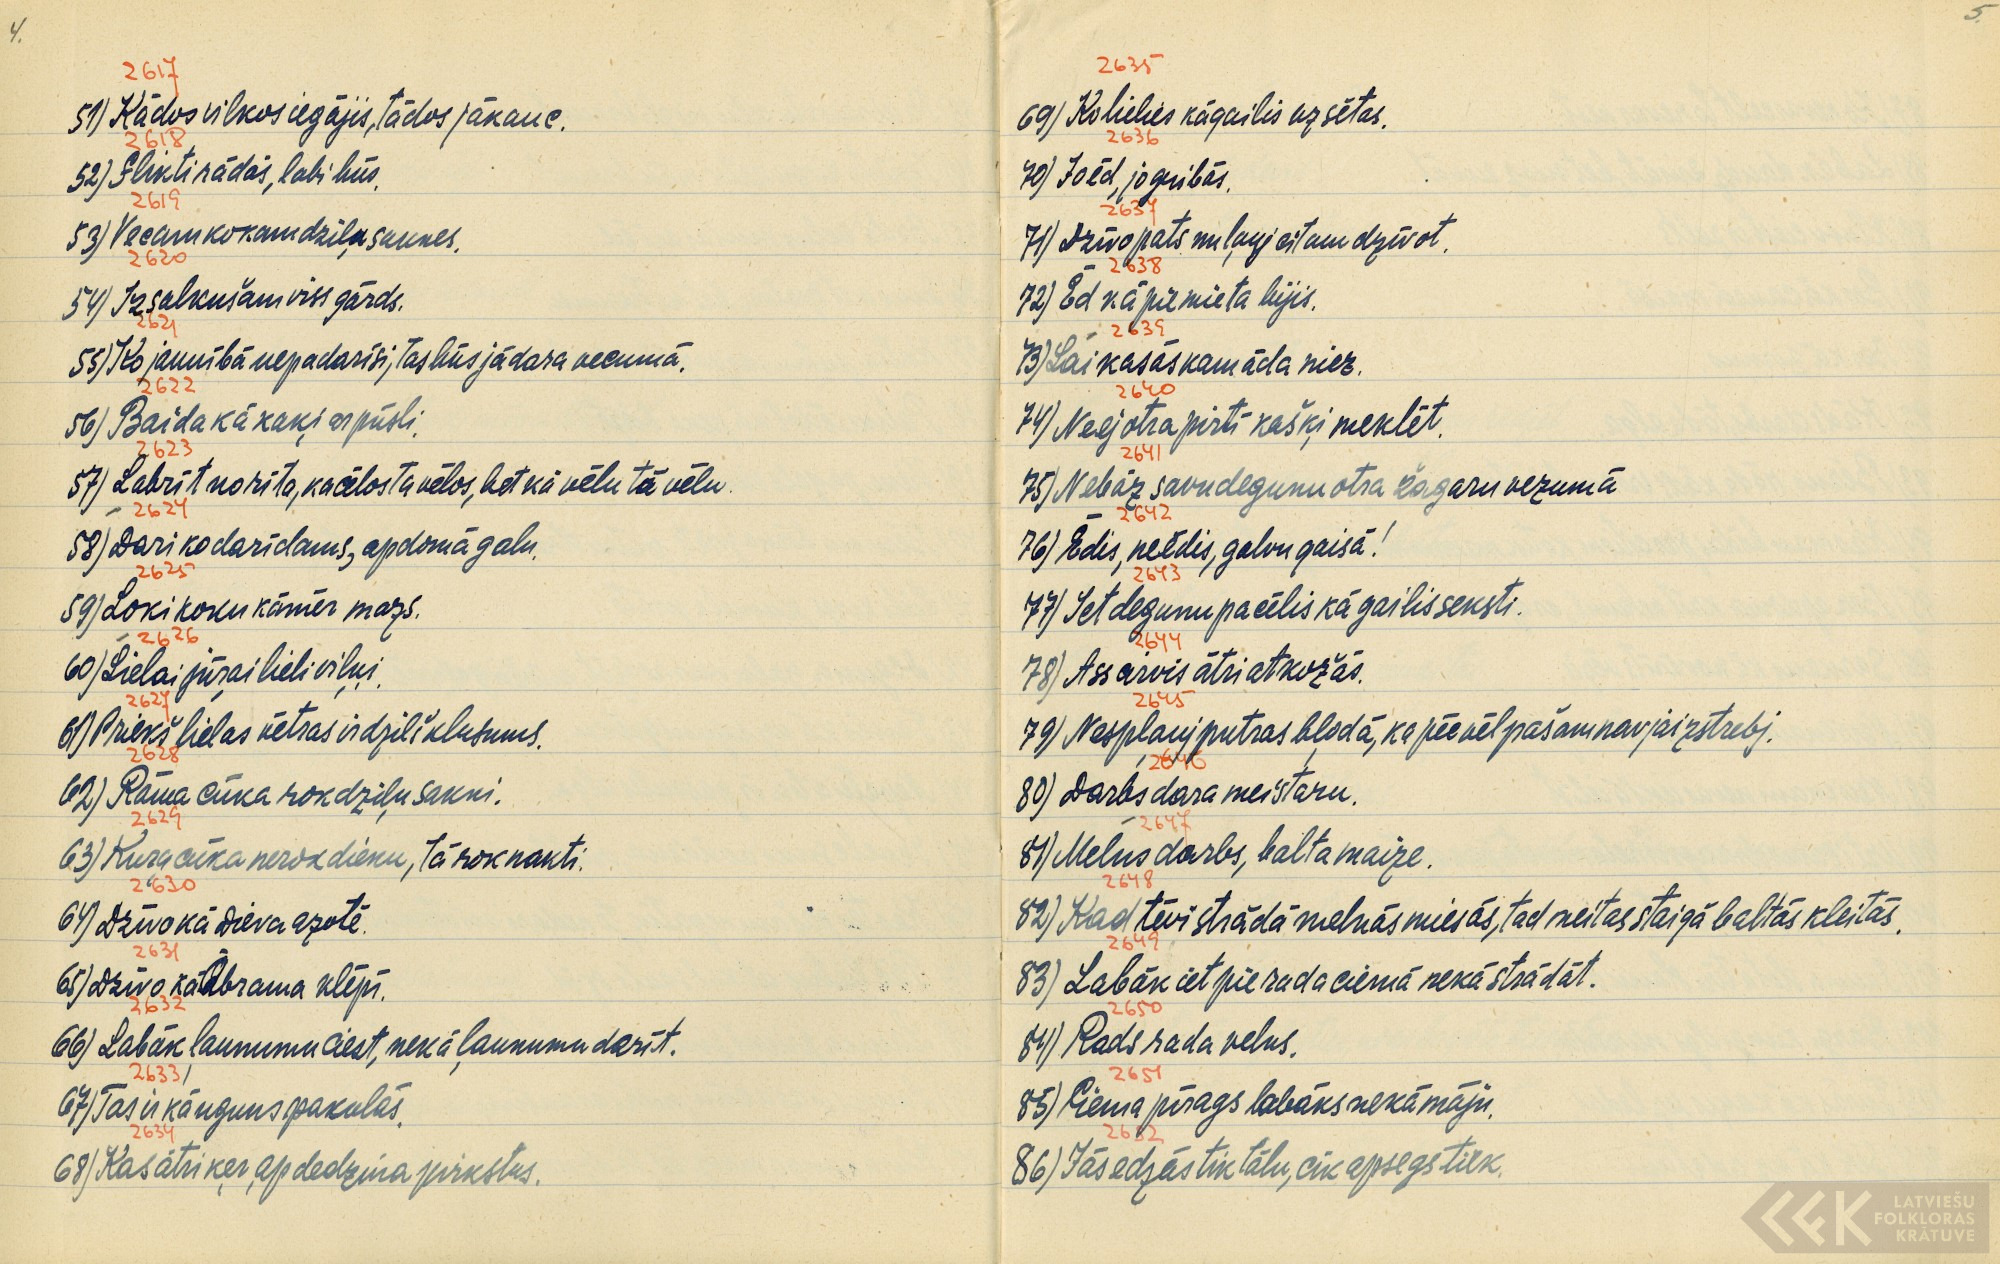 4.
2617
51) Kādos vilkos iegājis, tādos jākauc.
2618
52) Slikti rādās, labi būs.
2619
53) Vecam kokam dziļa saknes.
2620
54) Izsalkušam viss gārds.
2621
55) Ko jaunībā nepadarīsi, tas būs jādara vecumā.
2622
56) Baida kā kaķi ar pūsli.
2623
57) Labrīt no rīta, ka cēlos tā vēlos, bet kā vēlu tā vēlu.
2624
58) Dari ko darīdams, apdomā galu.
2625
59) Loki koku kāmēr mazs.
2626
60) Lielai jūŗai lieli viļņi.
2627
61) Priekš lielas vētras ir dziļš klusums.
2628
62) Rāma cūka rok dziļu sakni.
2629
63) Kuŗa cūka nerok dienu, tā rok nakti.
2630
64) Dzīvo kā Dieva azotē.
2631
65) Dzīvo kā Ābrama klēpī.
2632
66) Labāk ļaunumu ciest, nekā ļaunumu darīt.
2633
67) Tas ir kā uguns pakulās.
2634
68) Kas ātri ķeŗ, apdedzina pirkstus.
5.
2635
69) Ko lielies kā gailis uz sētas.
2636
70) Jo ēd, jo gribās.
2637
71) Dzīvo pats un ļauj citam dzīvot.
2638
72) Ēd kā pie mieta bijis.
2639
73) Lai kasās kam āda niez.
2640
74) Neej otra pirtī kašķi meklēt.
2641
75) Nebāz savu degunu otra žagaru vezumā
2642
76) Ēdis, neēdis, galvu gaisā!
2643
77) Iet degunu pacēlis kā gailis seksti.
2644
78) Ass cirvis ātri atkožās.
2645
79) Nespļauj putras bļodā, ka pēc vēl pašam nav jāizstrebj.
2646
80) Darbs dara meistaru.
2647
81) Melns darbs, balta maize.
2648
82) Kad tēvi strādā melnās miesās, tad meitas staigā baltās kleitās.
2649
83) Labāk iet pie rada ciemā nekā strādāt.
2650
84) Rads rada velns.
2651
85) Ciema pīrags labāks nekā māju.
2652
86) Jās edzās tik tālu, cik apsegs tiek.
LATVIEŠU
FOLKLORAS
KRĀTUVE